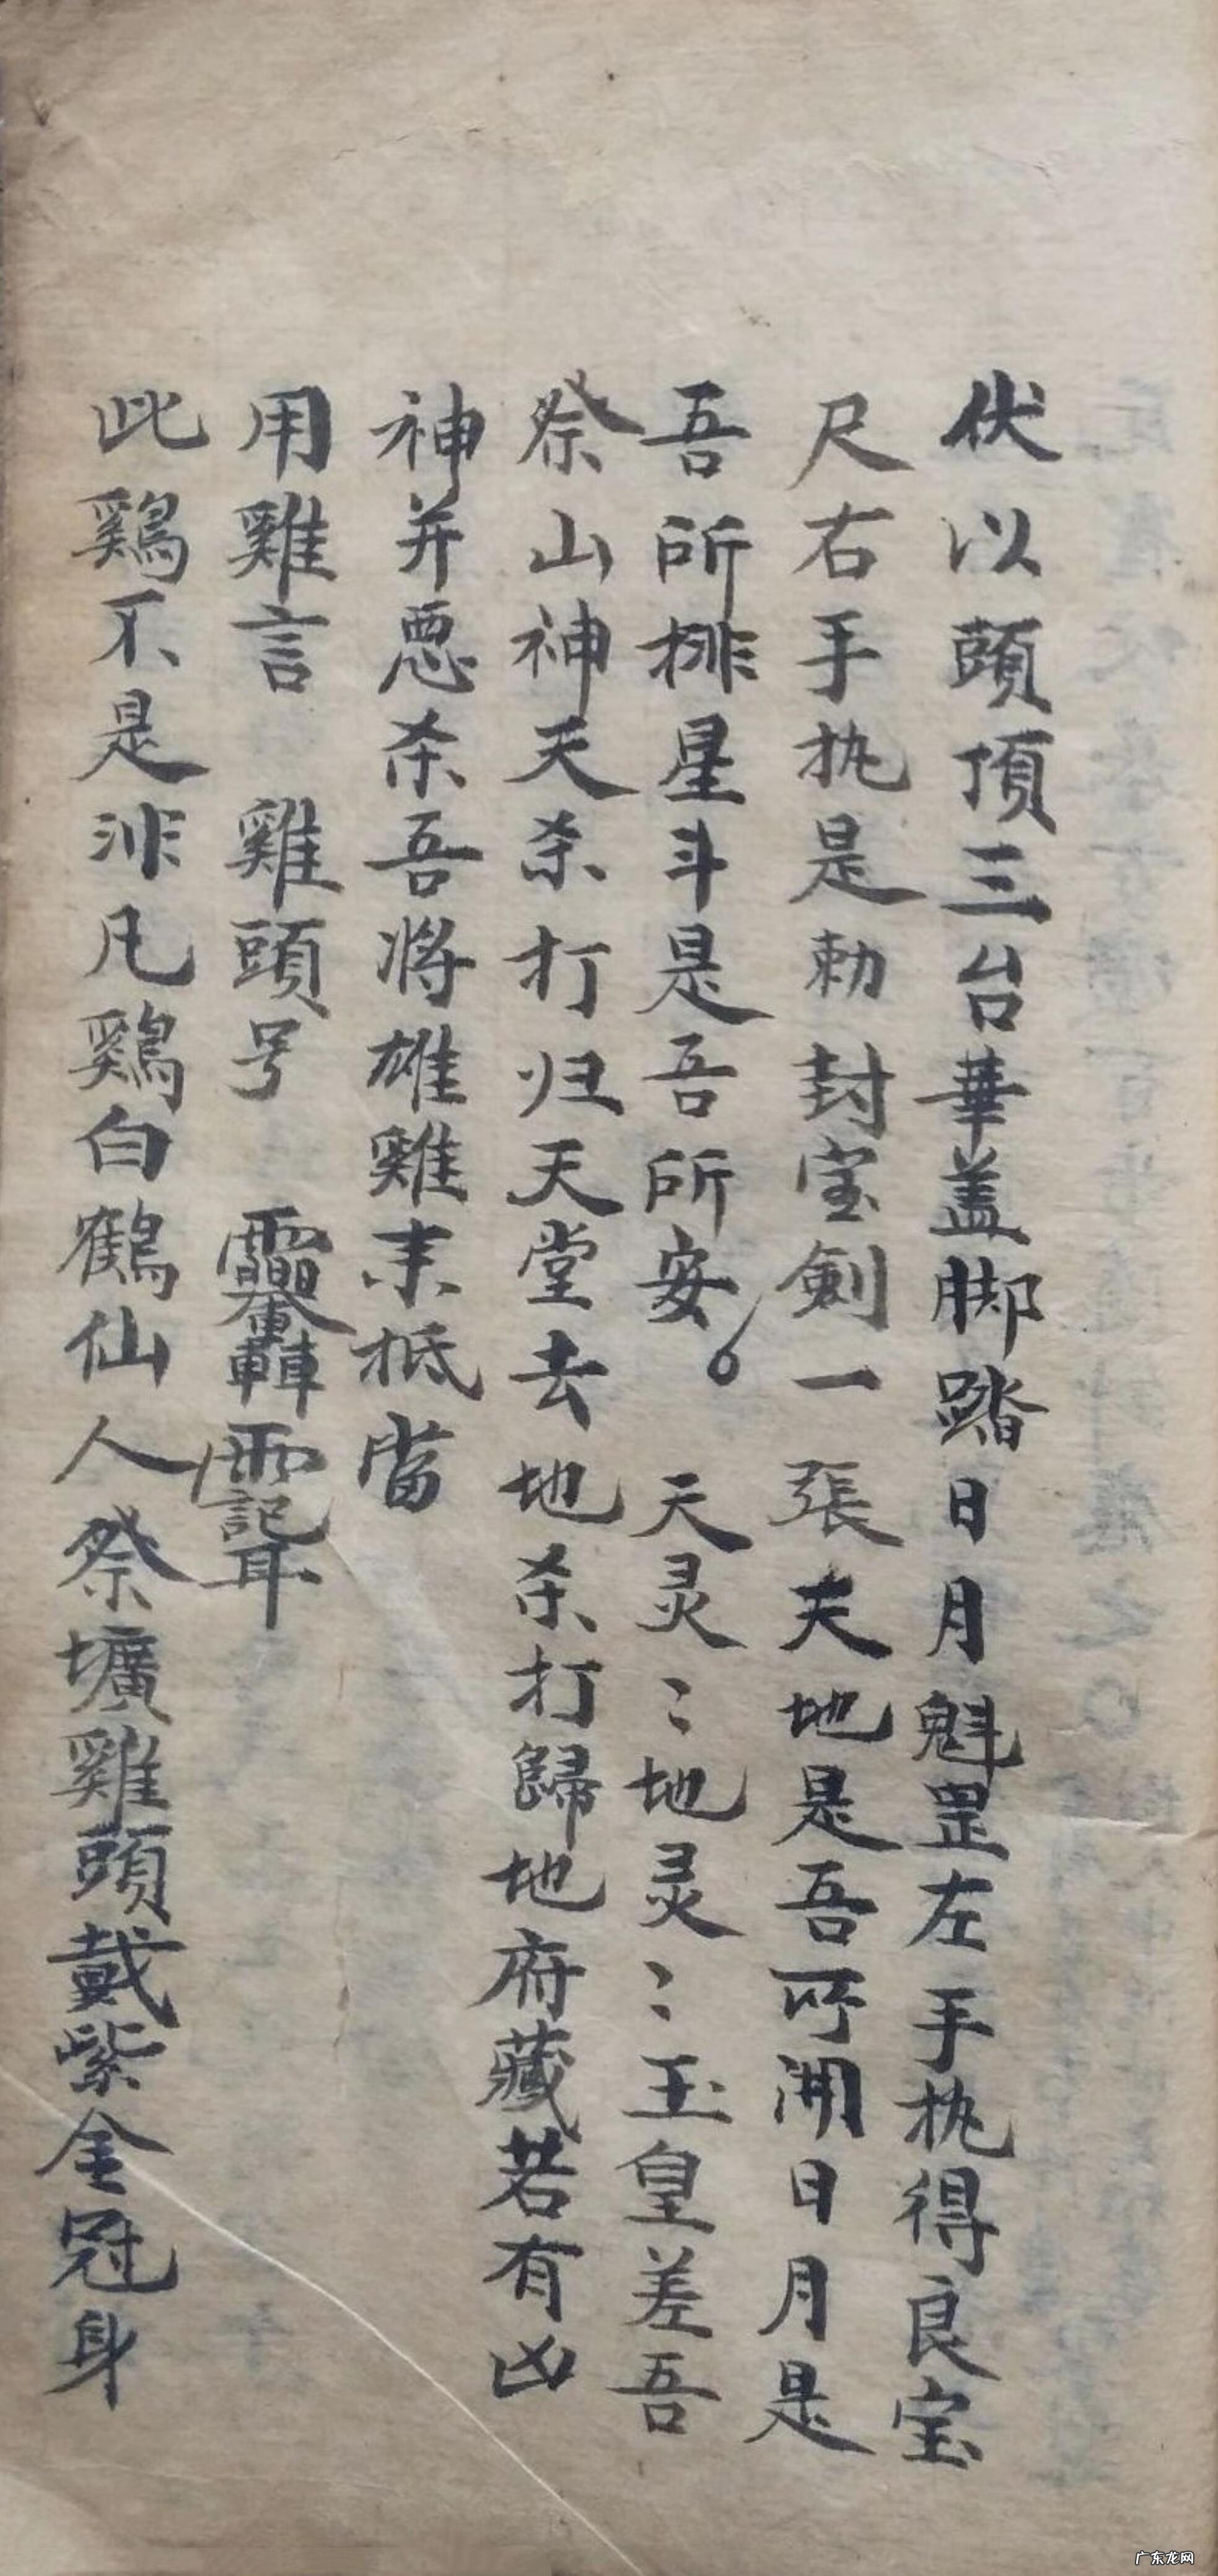 伏以頭頂三台華盖脚踏日月魁罡左手执得良宝
尺右手执是勅封宝劍一張天地是吾所開日月是
吾所排星斗是吾所安。天灵〻地灵〻玉皇差吾
祭山神天杀打归天堂去地杀打歸地府藏若有凶
神并悪杀吾将雄雞来抵當
用雞言 雞頭号
此鷄不是非凡鷄白鶴仙人祭壙雞頭戴紫金冠身
广东龙网